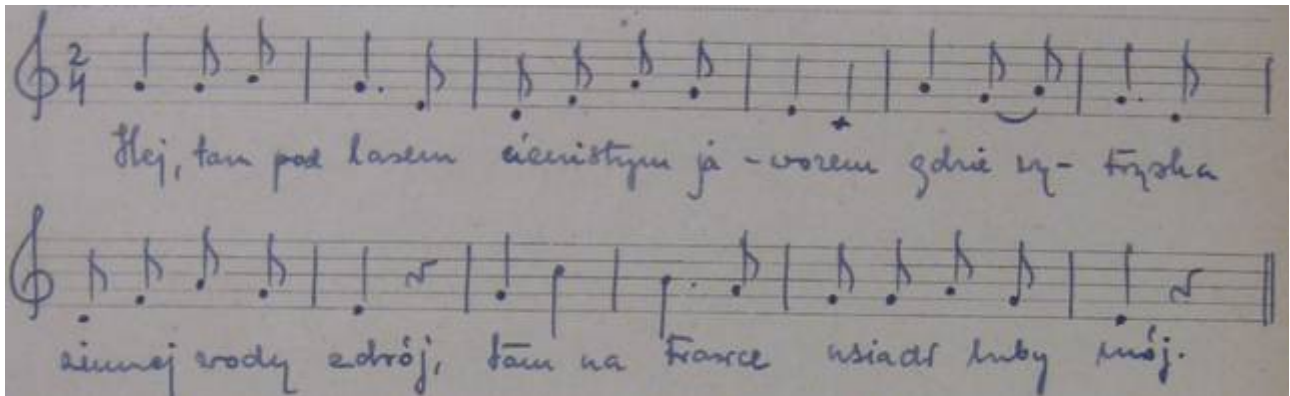 2
4
Hej, tam pod lasem cienistym ja - worem gdzie wy - tryska
zimnej wody zdrój, tam na trawce usiadł luby mój.